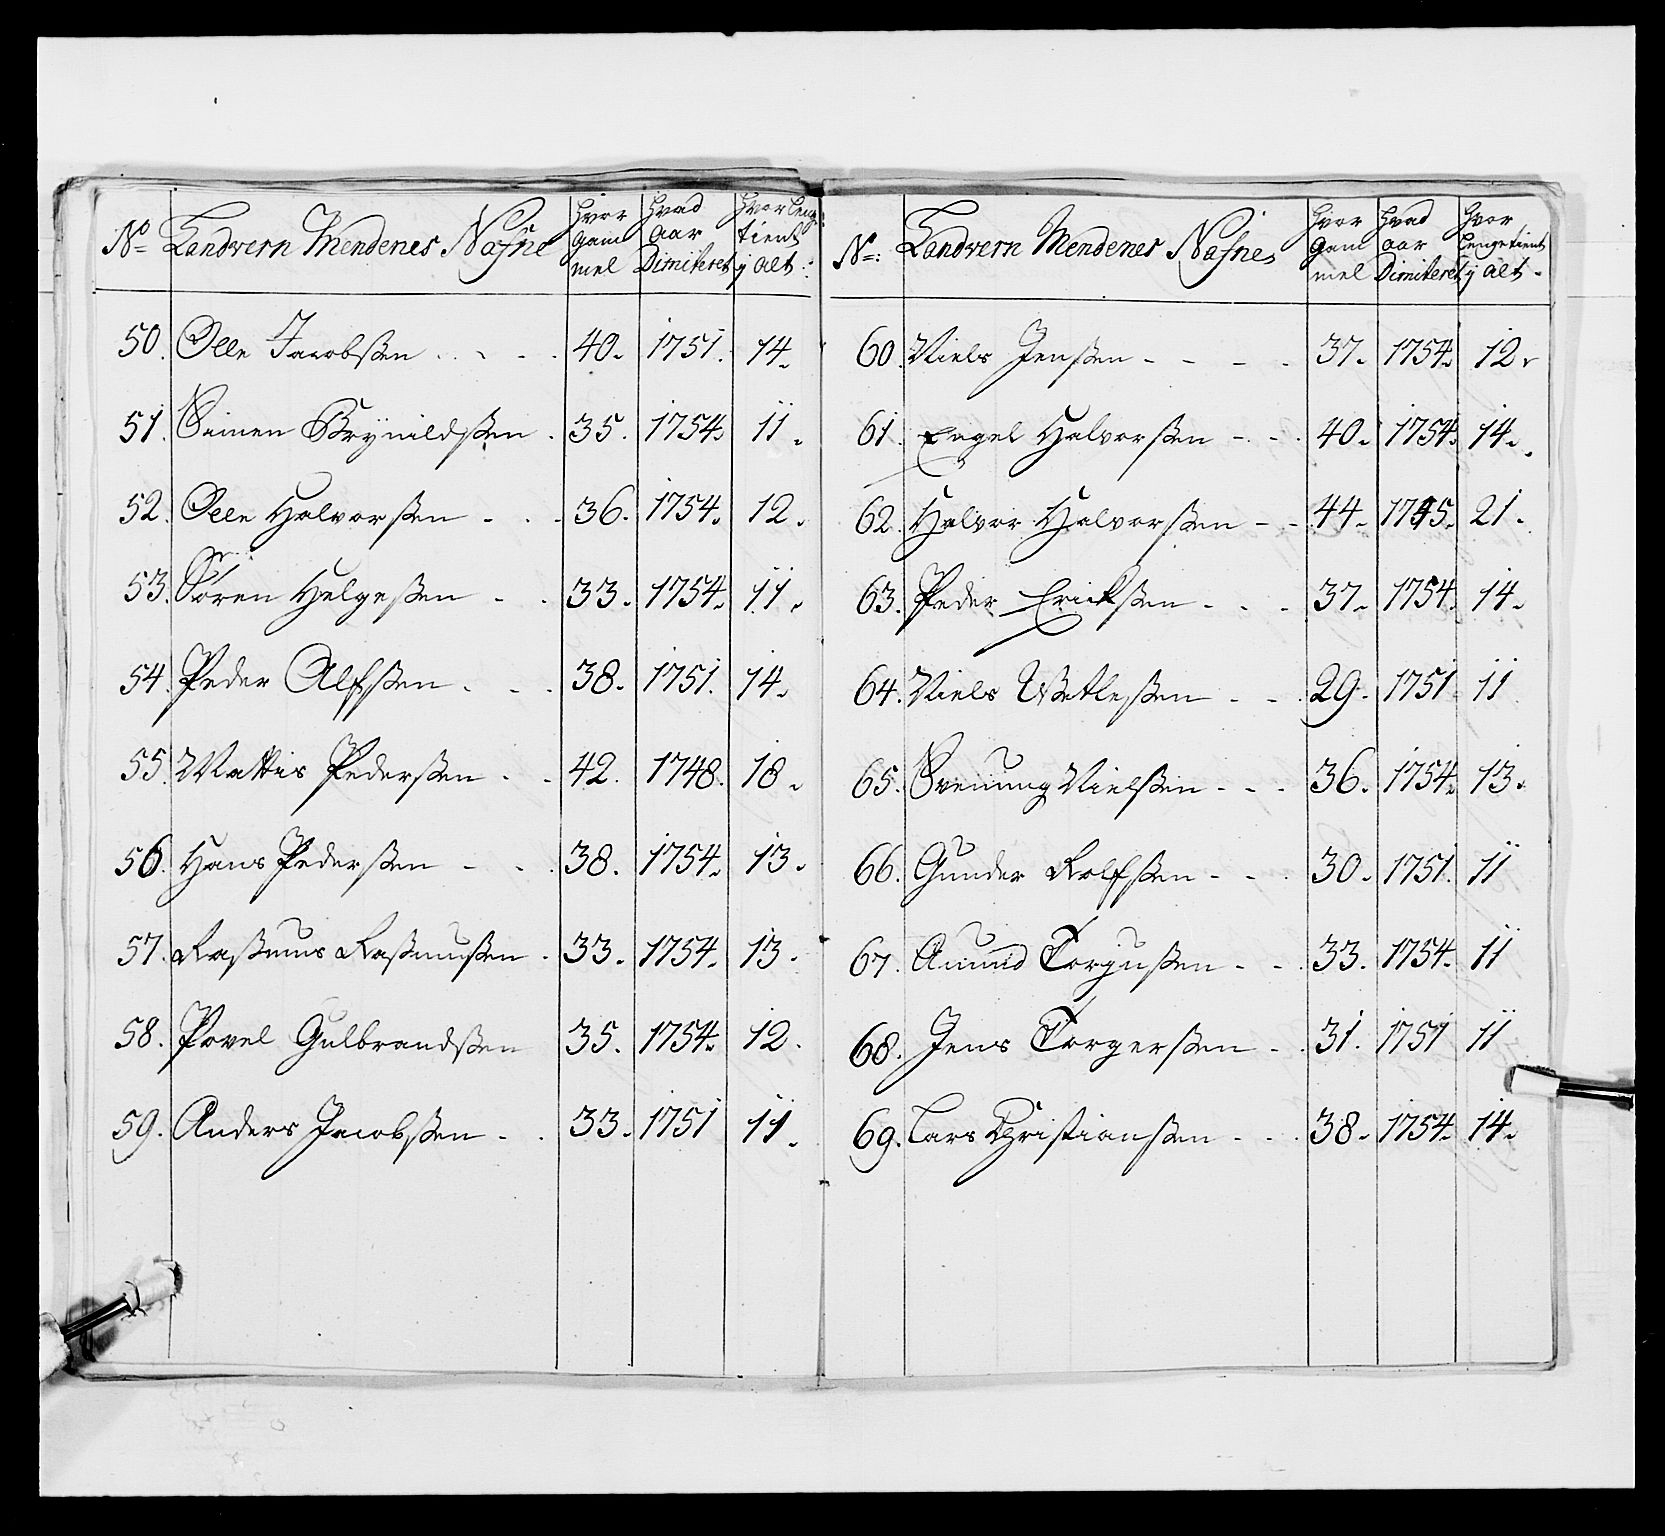 No Landvern Mendenes Nafne | Hvor gam mel | Hvad aar Dimiteret | Hvor Leng tient j alt:
50. Olle Jacobsen | 40. | 1751. | 14.
51. Simen Brynildsen | 35. | 1754. | 11.
52. Olle Halvorsen | 36. | 1754. | 12.
53. Søren Helgesen | 33. | 1754. | 11.
54. Peder Alfsen | 38. | 1751. | 14.
55. Mattis Pedersen | 42. | 1748. | 18.
56. Hans Pedersen | 38. | 1754. | 13.
57. Rasmus Rasmusen | 33. | 1754. | 13.
58. Povel Gulbrandsen | 35. | 1754. | 12.
59. Anders Jacobsen | 33. | 1751 | 11.
No: Landvern Mendenes Nafne | Hvor gam mel | Hvad aar Dimiteret | Hvor Lenge tient j alt
60. Niels Jensen | 37. | 1754. | 12.
61. Engel Halvorsen | 40. | 1754. | 14.
62. Halvor Halvorsen | 44. | 1745. | 21.
63. Peder Ericksen | 37. | 1754. | 14.
64. Niels Wetlesen | 29. | 1751 | 11
65. Svenung Nielsen | 36. | 1754. | 13.
66. Gunder Rolfsen | 30. | 1751. | 11
67. Amund Torgusen | 33. | 1754. | 11
68. Jens Torgersen | 31. | 1751 | 11
69. Lars Christiansen | 38. | 1754. | 14.